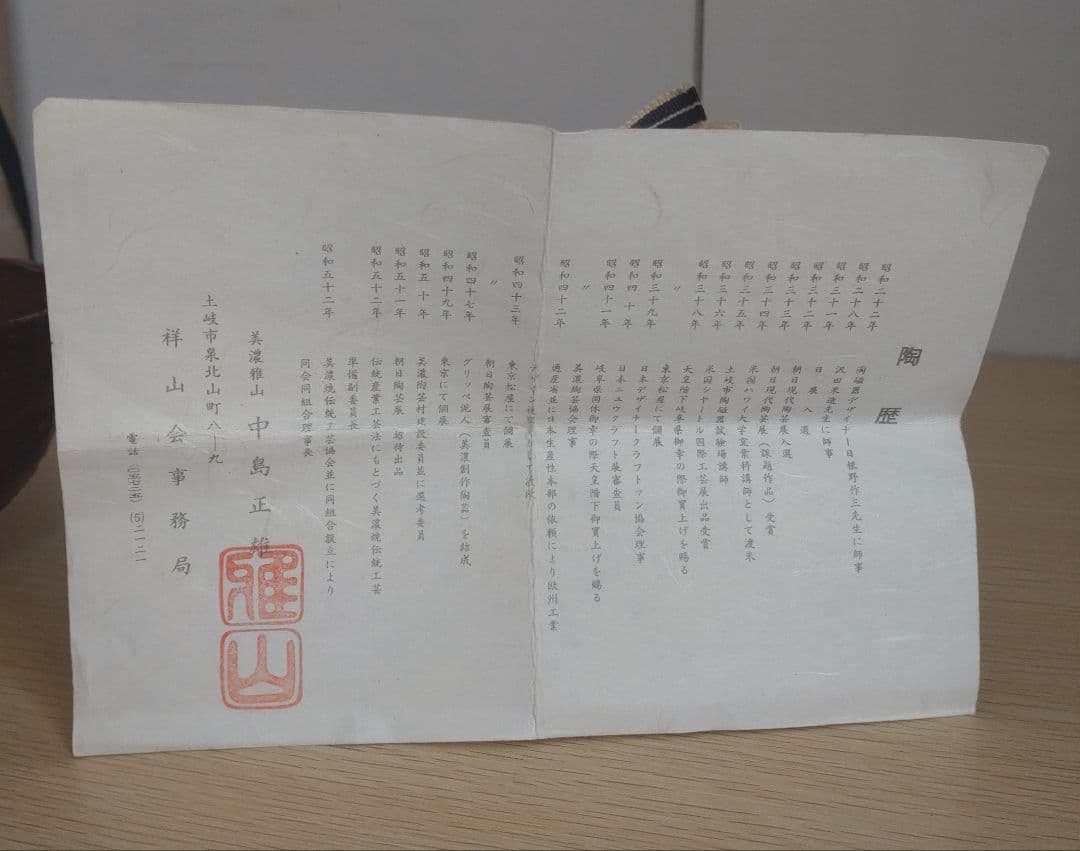 陶歴
昭和二十二年 陶磁器デザイナー日根野作三先生に師事
昭和二十八年 沢田米造先生に師事
昭和三十一年 日展入選
昭和三十二年 朝日現代陶芸展入選
昭和三十三年 朝日現代陶芸展(課題作品)受賞
昭和三十四年 米国ハワイ大学窯業科講師として渡米
昭和三十五年 土岐市陶磁器試験場講師
昭和三十六年 米国シヤートル国際工芸展出品受賞
昭和三十八年 天皇陛下岐阜県御幸の際御買上げを賜る
〃 東京松屋にて個展
昭和三十九年 日本デザイナークラフトマン協会理事
昭和四十年 日本ニュウクラフト展審査員
昭和四十一年 岐阜県国体御幸の際天皇陛下御買上げを賜る
〃 美濃陶芸協会理事
昭和四十二年 通産省並に日本生産性本部の依頼により欧州工業
デザイン
昭和四十三年 東京松屋にて個展
〃 朝日陶芸展審査員
昭和四十七年 グリッペ泥人(美濃創作陶芸)を結成
昭和四十九年 東京にて個展
昭和五十年 美濃陶芸村建設委員並に選考委員
昭和五十一年 朝日陶芸展 招待出品
昭和五十二年 伝統産業工芸法にもとづく美濃焼伝統工芸
準備副委員長
昭和五十二年 美濃焼伝統工芸協会並に同組合設立により
同会同組合理事長
美濃雅山 中島正雄
雅山
土岐市泉北山町八ー九
祥山会事務局
電話 (〇五七二五) (5)二一二一